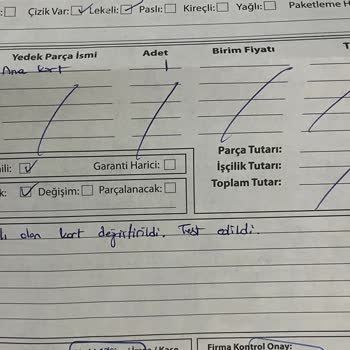 Çizik Var: Lekeli: Paslı: Kireçli: Yağlı: Paketleme H
Yedek Parça İsmi Adet Birim Fiyatı T
Ana kart 1
Parça Tutarı:
ili: Garanti Harici: İşçilik Tutarı:
k: Değişim: Parçalanacak: Toplam Tutar:
lı olan kart değiştirildi. Test edildi.
Firma Kontrol Onay: